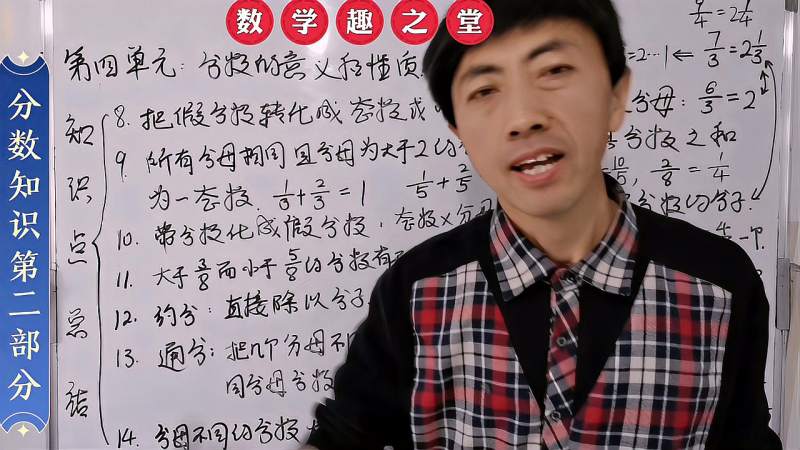 数学趣之堂
分数知识第二部分
第四单元：分数的意义和性质
知识点总结
9/4=2 1/4
=2…1⇐ 7/3=2 1/3
8. 把假分数转化成整数或
分母：6/3=2
9. 所有分母相同且分母为大于2的
分数之和
为一整数. 1/3+2/3=1 1/5+2/5
2/8=1/4
10. 带分数化成假分数，整数×分母
分数的分子.
11. 大于3/8而小于5/8的分数有
12. 约分：直接除以分子
13. 通分：把几个分母不
同分母分数
14. 分母不同的分数